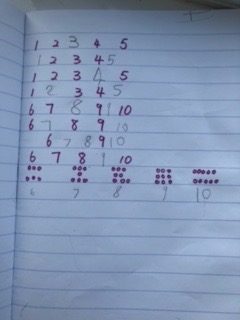 1 2 3 4 5
1 2 3 4 5
1 2 3 4 5
1 2 3 4 5
6 7 8 9 10
6 7 8 9 10
6 7 8 9 10
6 7 8 9 10
6 7 8 9 10